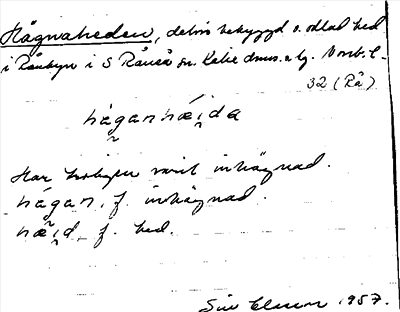 Hågnaheden, delvis bebyggd o. odlad hed
i Rånbyn i S Råneå sn. Kalix dmns. o lg. Norrb. l.
32 (Rå)
håganhæịda
Har troligen varit inhägnad.
hågan, f. inhägnad.
hæịd, f. hed.
1957.